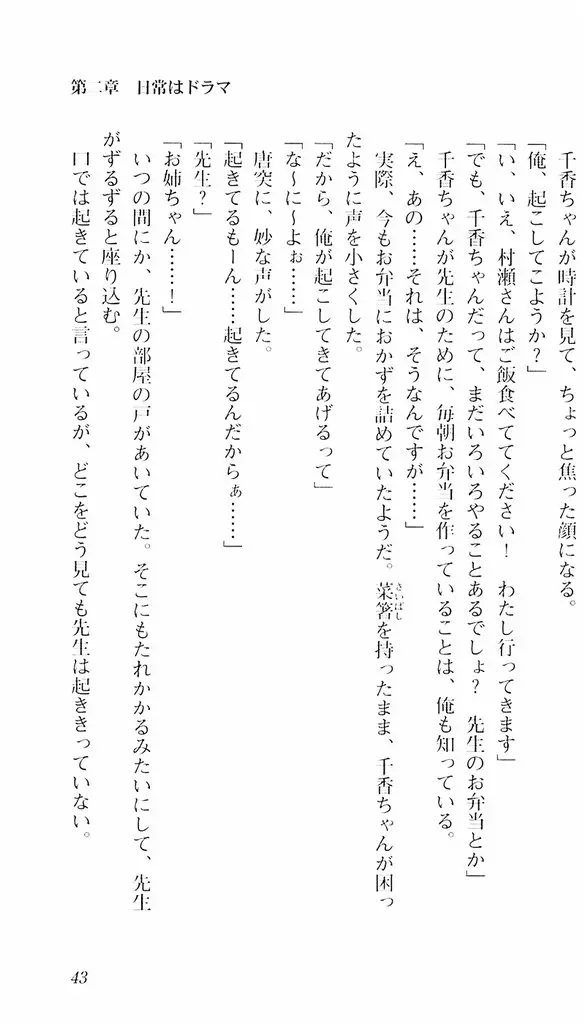 第二章　日常はドラマ
千香ちゃんが時計を見て、ちょっと焦った顔になる。
「俺、起こしてこようか？」
「い、いえ、村瀬さんはご飯食べててください！　わたし行ってきます」
「でも、千香ちゃんだって、まだいろいろやることあるでしょ？　先生のお弁当とか」
千香ちゃんが先生のために、毎朝お弁当を作っていることは、俺も知っている。
「え、あの……それは、そうなんですが……」
実際、今もお弁当におかずを詰めていたようだ。菜箸さいばしを持ったまま、千香ちゃんが困っ
たように声を小さくした。
「だから、俺が起こしてきてあげるって」
「な～に～よぉ……」
唐突に、妙な声がした。
「起きてるもーん……起きてるんだからぁ……」
「先生？」
「お姉ちゃん……！」
いつの間にか、先生の部屋の戸があいていた。そこにもたれかかるみたいにして、先生
がずるずると座り込む。
口では起きていると言っているが、どこをどう見ても先生は起ききっていない。
43